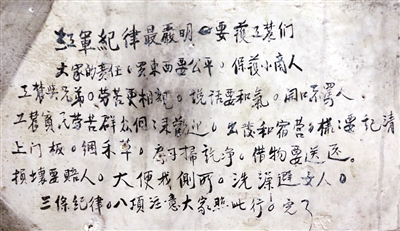 红軍紀律最嚴明 要獲工農们
大家的責任。買東西要公平。保護小商人
工農與兄弟。勞苦更相親。說话要和氣。開口不罵人。
工農貧民勞苦群众個了來歡迎。出發和宿营。樣了要記清
上门板。綑禾草。房子掃說净。借物要送还。
損壞要賠人。大便我側所。洗澡避女人。
三條紀律。八項注意大家照此行。完了